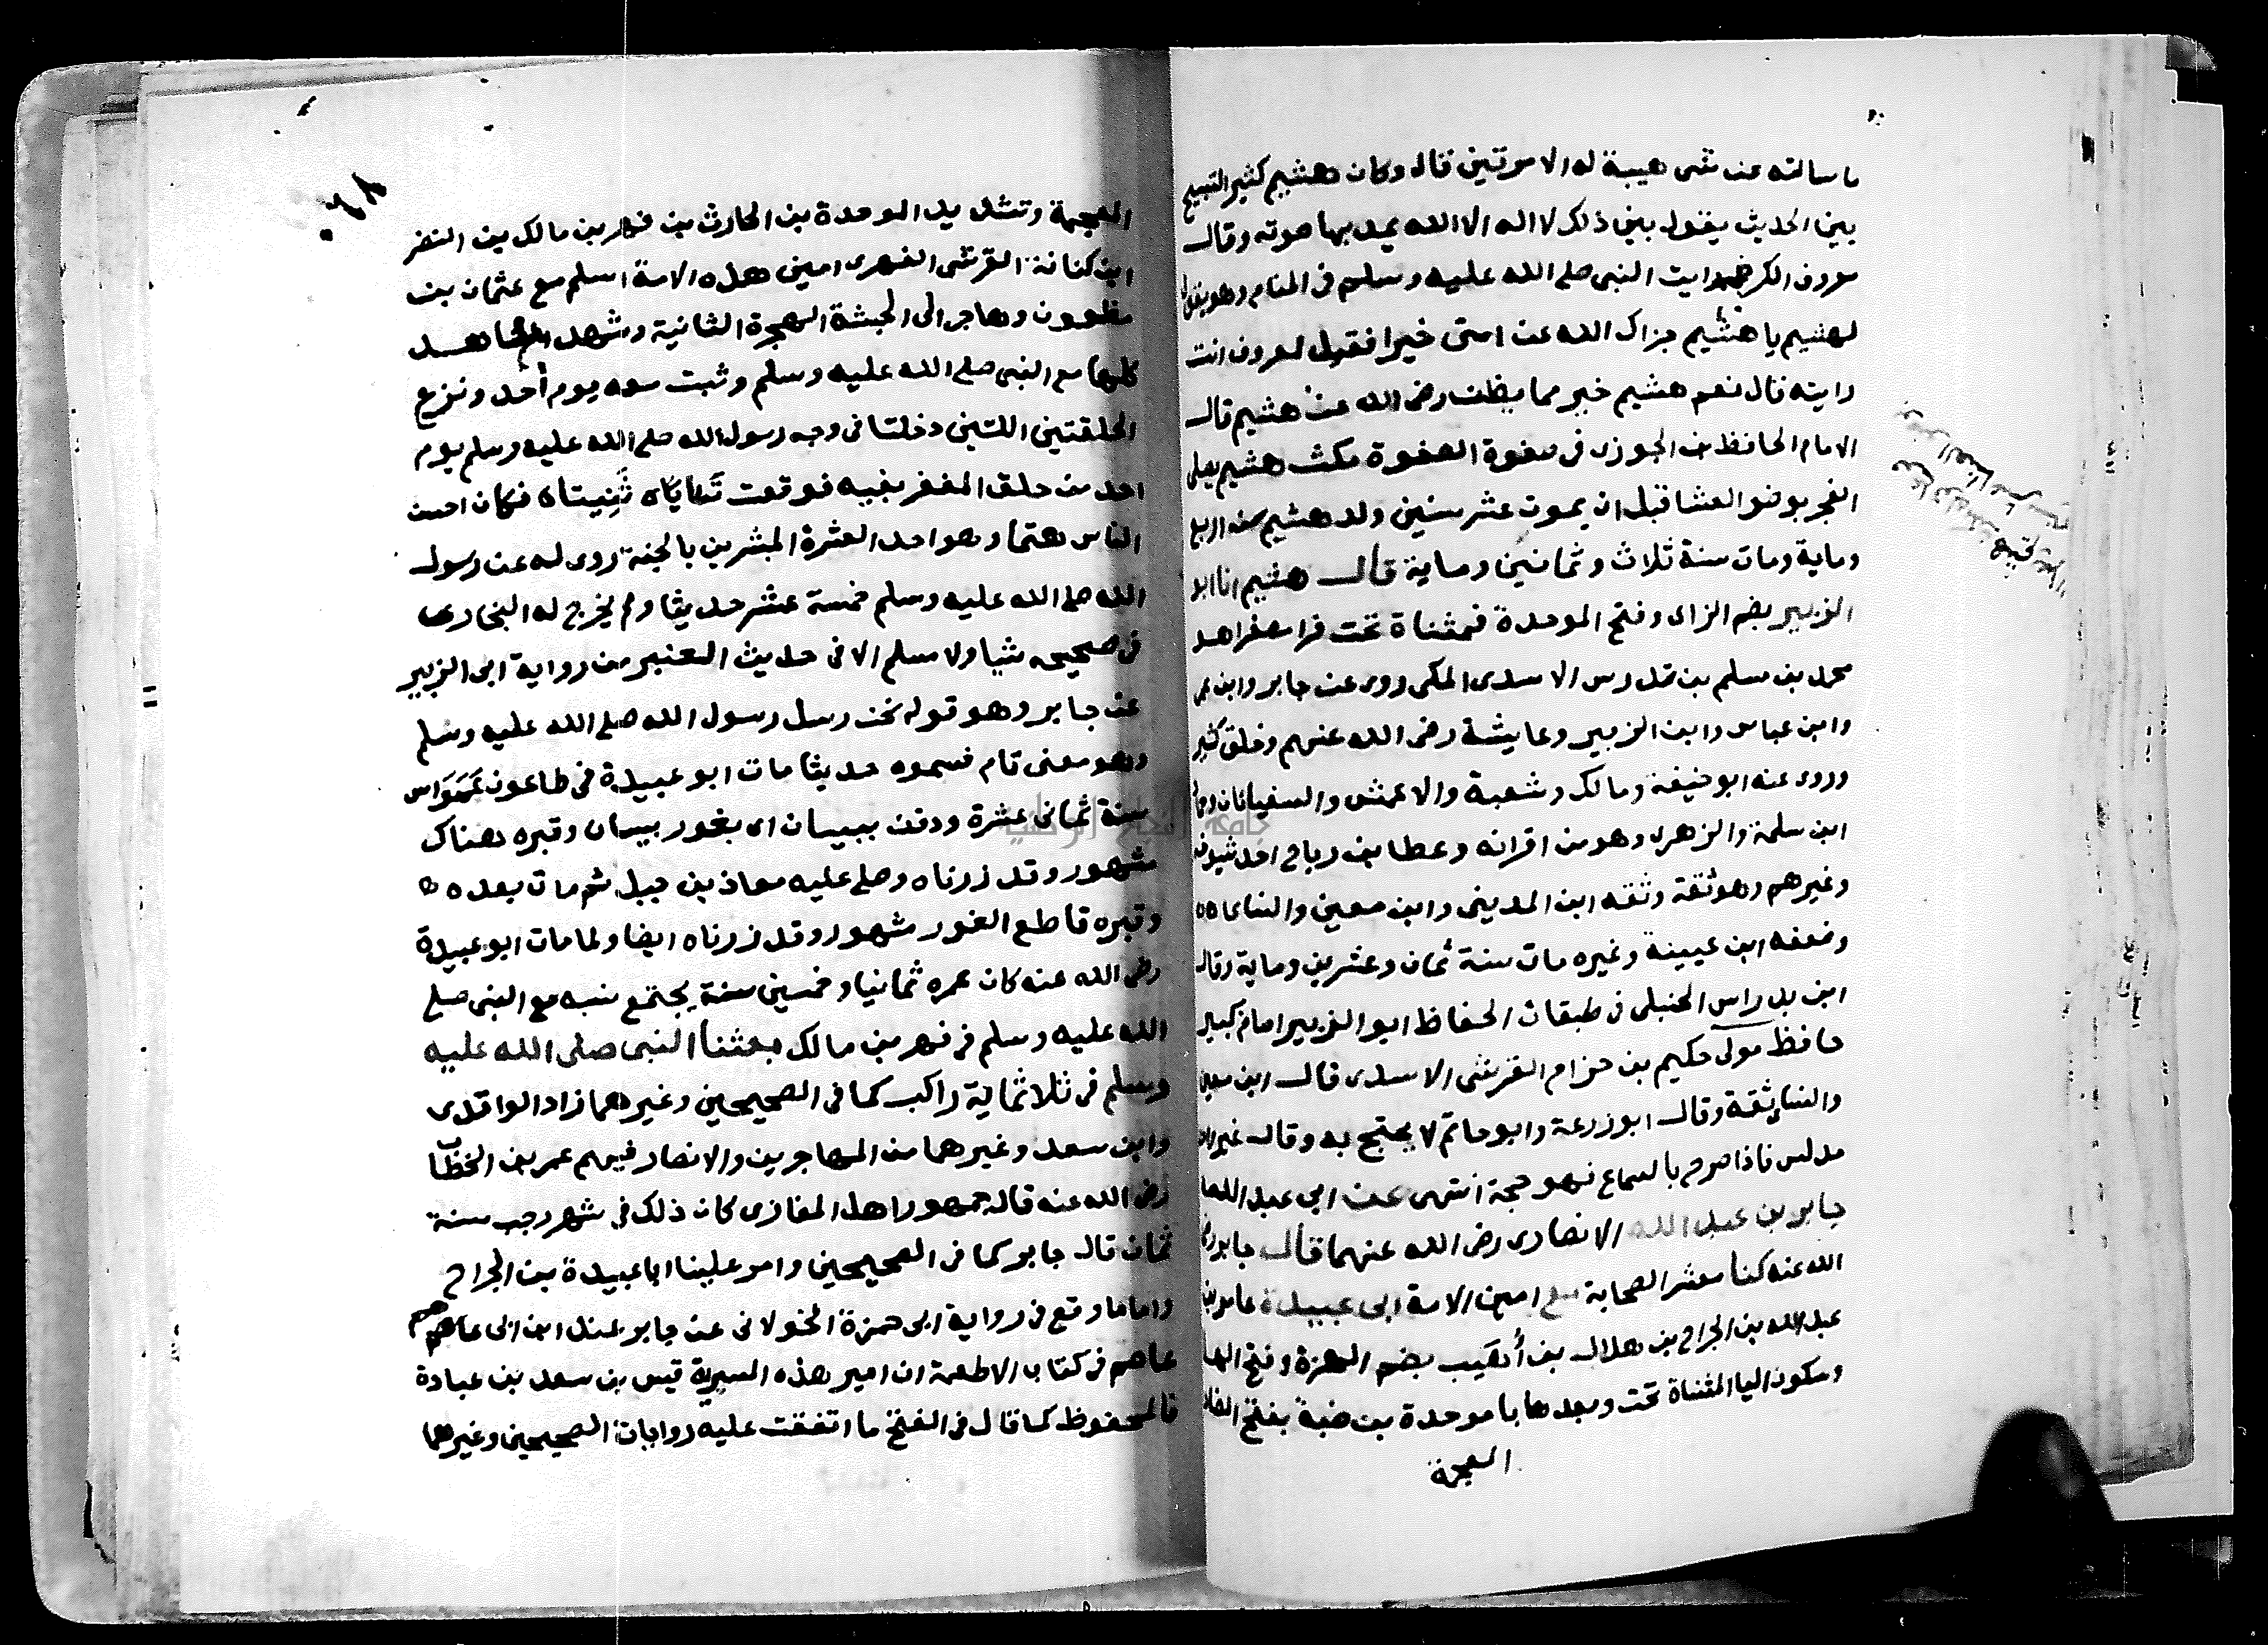 ما سالته عن شى هيبة له الا مرتين قال وكان هشيم كثير التسبيح
بين الحديث يقول بين ذلك لا اله الا الله يمد بها صوته وقال
معروف الكرخى رايت النبى صلى الله عليه وسلم فى المنام وهو يقول
لهشيم يا هشيم جزاك الله عن امتى خيرا فقيل لمعروف انت
رايته قال نعم هشيم خير مما يظن رضى الله عن هشيم قال
الامام الحافظ بن الجوزى فى صفوة الصفوة مكث هشيم يصلى
الفجر بوضو العشا قبل ان يموت عشر سنين ولد هشيم سنة اربع
وماية ومات سنة ثلاث وثمانين وماية قال هشيم انا ابو
الزبير بضم الزاى وفتح الموحدة فمثناة تحت فرا مصغرا هو
محمد بن مسلم بن تدرس الاسدى المكى روى عن جابر وابن عمر
وابن عباس وابن الزبير وعايشة رضى الله عنهم وخلق كثير
وروى عنه ابو حنيفة ومالك وشعبة والاعمش والسفيانان وحماد
ابن سلمة والزهرى وهو من اقرانه وعطا بن رباح احد شيوخه
وغيرهم وهو ثقة وثقه ابن المدينى وابن معين والنساى
وضعفه ابن عيينة وغيره مات سنة ثمان وعشرين وماية وقال
ابن بدراس الحنبلى فى طبقات الحفاظ ابو الزبير امام كبير
حافظ مولى حكيم بن حزام القرشى الاسدى قال ابن معين
والنساى ثقة وقال ابو زرعة وابو حاتم لا يحتج به وقال غيرهم
مدلس فاذا صرح بالسماع فهو حجة انتهى عن ابى عبد الله
جابر بن عبد الله الانصارى رضى الله عنهما قال جابر رضى
الله عنه كنا معشر الصحابة مع امين الامة ابى عبيدة عامر بن
عبد الله بن الجراح بن هلال بن أهيب بضم الهمزة وفتح الها
وسكون اليا المثناة تحت وبعدها با موحدة بن ضبة بفتح الضاد
المعجمة
٠٦٨
المعجمة وتشديد الموحدة بن الحارث بن فهر بن مالك بن النضر
ابن كنانة القرشى الفهرى امين هذه الامة اسلم مع عثمان بن
مظعون وهاجر الى الحبشة الهجرة الثانية وشهد المشاهد
كلها مع النبى صلى الله عليه وسلم وثبت معه يوم أحد ونزع
الحلقتين اللتين دخلتا فى وجه رسول الله صلى الله عليه وسلم يوم
احد من حلق المغفر بفيه فوقعت ثَنِيتاه فكان احسن
الناس هتما وهو احد العشرة المبشرين بالجنة روى له عن رسول
الله صلى الله عليه وسلم خمسة عشر حديثا ولم يخرج له البخارى
فى صحيحه شيا ولا مسلم الا فى حديث العنبر من رواية ابى الزبير
عن جابر وهو قوله نحن رسل رسول الله صلى الله عليه وسلم
وهو معنى تام فسموه حديثا مات ابو عبيدة فى طاعون عَمَوَاس
سنة ثمانى عشرة ودفن ببيسان اى بغور بيسان وقبره هناك
مشهور وقد زرناه وصلى عليه معاذ بن جبل ثم مات بعده
وقبره قاطع الغور مشهور وقد زرناه ايضا ولما مات ابو عبيدة
رضى الله عنه كان عمره ثمانيا وخمسين سنة يجتمع نسبه مع النبى صلى
الله عليه وسلم فى فهر بن مالك بعثنا النبى صلى الله عليه
وسلم فى ثلاثماية راكب كما فى الصحيحين وغيرهما زاد الواقدى
وابن سعد وغيرهما من المهاجرين والانصار فيهم عمر بن الخطاب
رضى الله عنه قال جمهور اهل المغازى كان ذلك فى شهر رجب سنة
ثمان قال جابر كما فى الصحيحين وامر علينا ابا عبيدة بن الجراح
واما ما وقع فى رواية ابى حمزة الخولانى عن جابر عند ابن ابى عاصم
عاصم فى كتاب الاطعمة ان امير هذه السرية قيس بن سعد بن عبادة
فالمحفوظ كما قال فى الفتح ما اتفقت عليه روايات الصحيحين وغيرهما